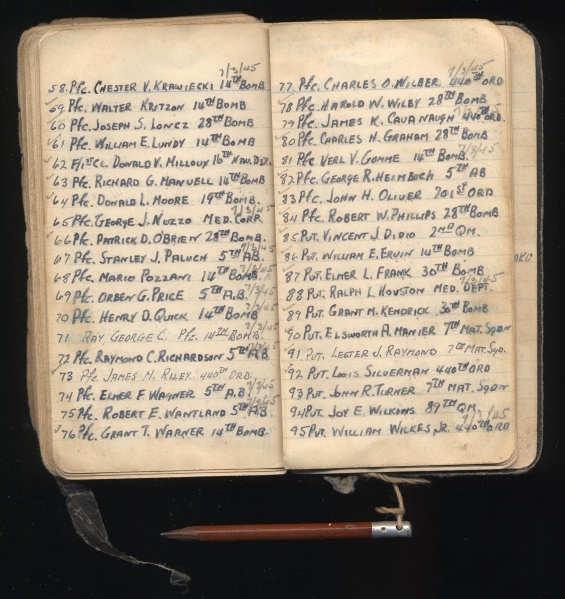 7/3/45
58. Pfc. CHESTER V. KRAWIECKI 14TH BOMB
59. Pfc. WALTER KRITZON 14TH BOMB
60 Pfc. JOSEPH S. LONCZ 28TH BOMB
61 Pfc. WILLIAM E. LUNDY 14TH BOMB
62 F/1st CL. DONALD V. MILLOUX 16TH NAV. DST.
63 Pfc. RICHARD G. MANUELL 14TH BOMB
64 Pfc. DONALD L. MOORE 19TH BOMB.
7/3/45
65 Pfc. GEORGE J. NUZZO MED. CORP.
66 Pfc. PATRICK D. O'BRIEN 28TH BOMB.
7/3/45
67 Pfc. STANLEY J. PALUCH 5TH A.B.
7/3/45
68 Pfc. MARIO POZZANI 14TH BOMB
7/3/45
69 Pfc. ORBEN G. PRICE 5TH A.B.
7/3/45
70 Pfc. HENRY D. QUICK 14TH BOMB
7/3/45
71 RAY, GEORGE C. Pfc. 14TH BOMB.
7/3/45
72 Pfc. RAYMOND C. RICHARDSON 5TH A.B
73 Pfc. JAMES M. RILEY 440TH ORD.
7/3/45
74 Pfc. ELMER F WAGNER 5TH A.B.
7/3/45
75 Pfc. ROBERT E. WANTLAND 5TH A.B.
76 Pfc. GRANT T. WARNER 14TH BOMB.
7/3/45
77 Pfc. CHARLES O. WILBER 440TH ORD
78 Pfc. HAROLD W. WILEY 28TH BOMB
79 Pfc. JAMES K. CAVANAUGH 440TH ORD.
80 Pfc. CHARLES H. GRAHAM 28TH BOMB
7/3/45
81 Pfc VERL V. GOMME 14TH BOMB.
82 Pfc. GEORGE R. HEIMBUCH 5TH AB
83 Pfc. JOHN H. OLIVER 701ST ORD
84 Pfc ROBERT W. PHILLIPS 28TH BOMB
85 PVT. VINCENT J. DIDIO 2ND QM.
86 PVT. WILLIAM E. ERVIN 14TH BOMB
87 PVT. ELMER L. FRANK 30TH BOMB
7/3/45
88 PVT. RALPH L. HOUSTON MED. DEPT.
89 PVT. GRANT M. KENDRICK 30TH BOMB
90 PVT. ELSWORTH A. MANIER 7TH MAT. SQDN
91 PVT. LESTER J. RAYMOND 7TH MAT. SQD.
92 PVT. LOUIS SILVERMAN 440TH ORD
93 PVT. JOHN R. TURNER 7TH MAT. SQDN
94 PVT. JOY E. WILKINS 89TH QM.
7/3/45
95 PVT. WILLIAM WILKES, JR. 440TH ORD